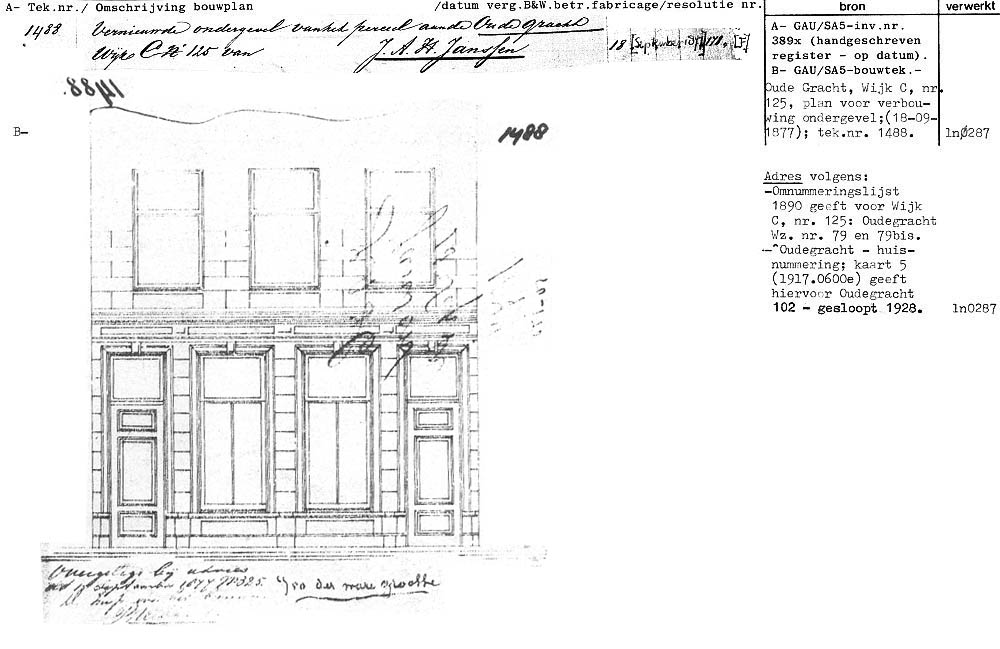 A- Tek.nr./ Omschrijving bouwplan /datum verg.B&W.betr.fabricage/resolutie nr. bron verwerkt
1488 Vernieuwde ondergevel van het perceel aan de Oude gracht
Wijk C No 125 van J. A. H. Janssen 18 [September 1877]
A- GAU/SA5-inv.nr.
389x (handgeschreven
register - op datum).
B- GAU/SA5-bouwtek.-
Oude Gracht, Wijk C, nr.
125, plan voor verbou-
wing ondergevel;(18-09-
1877); tek.nr. 1488. ln0287
1488.
B-
1488
Adres volgens:
-Omnummeringslijst
1890 geeft voor Wijk
C, nr. 125: Oudegracht
Wz. nr. 79 en 79bis.
-"Oudegracht - huis-
nummering; kaart 5
(1917.0600e) geeft
hiervoor Oudegracht
102 - gesloopt 1928. ln0287
Overgelegd bij advies
september 1877 No 325. op der ware grootte